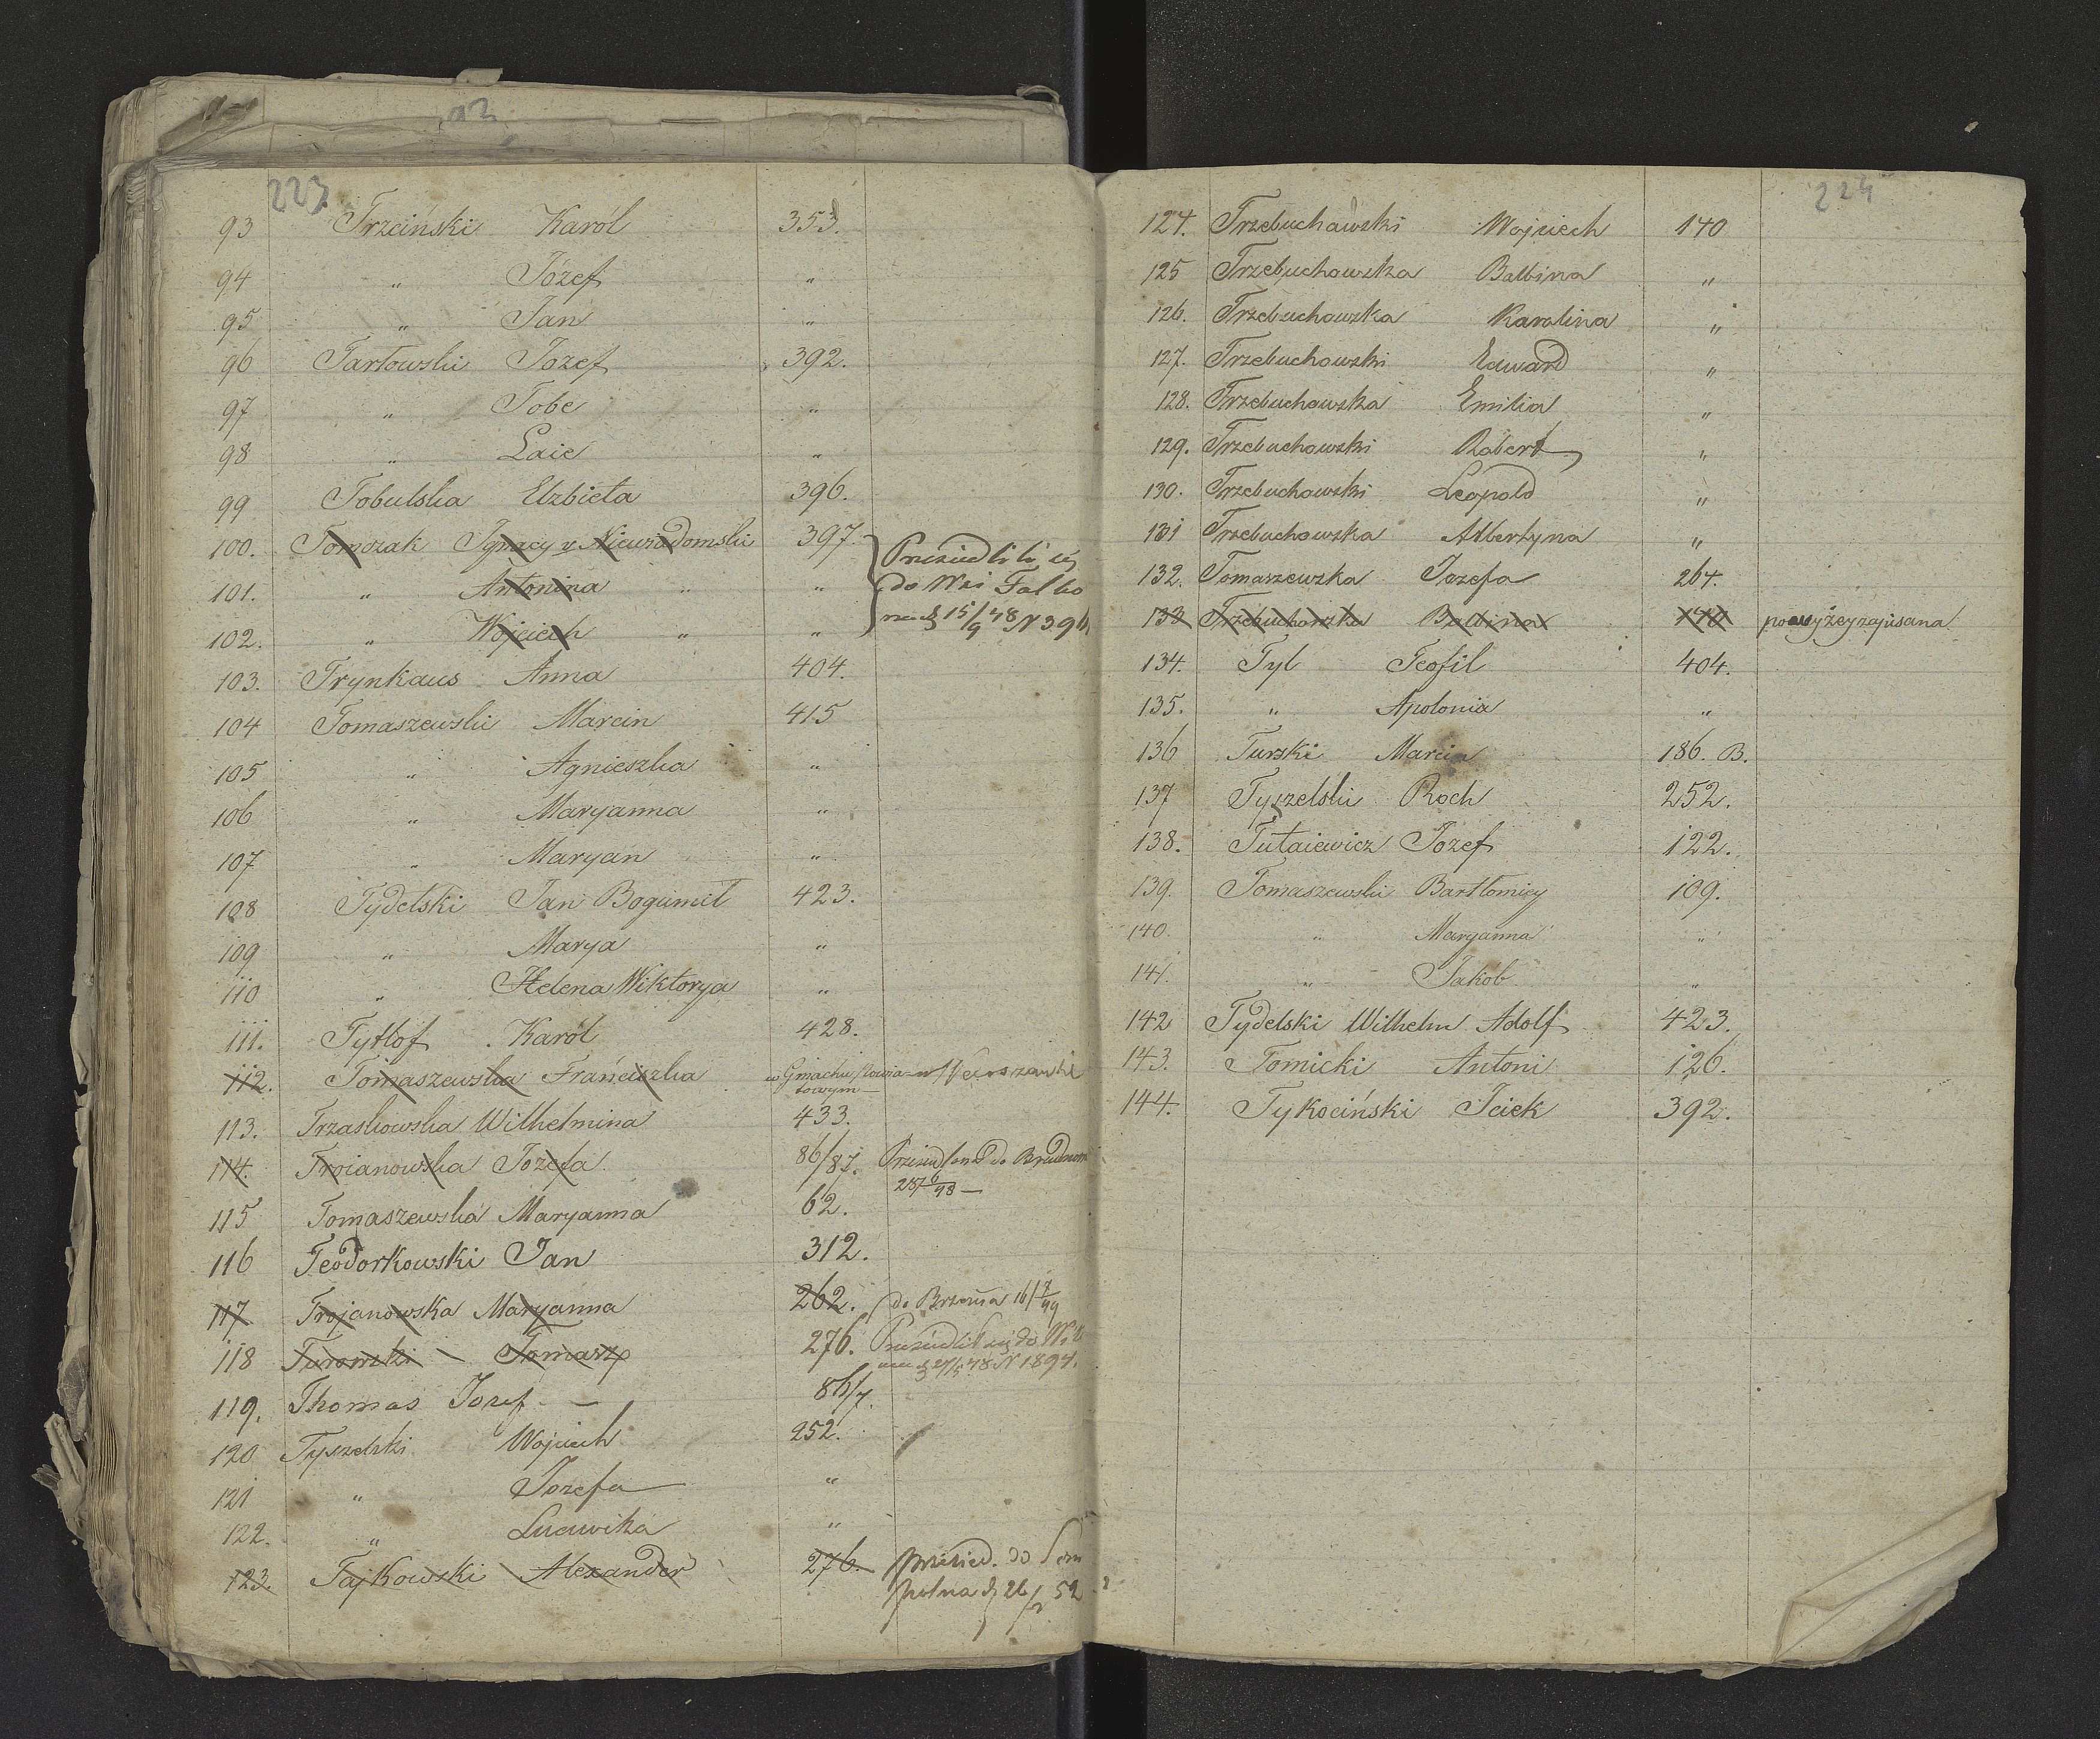 223
93 Trzciński Karól 353.
94 " Józef "
95 " Jan "
96 Tartowski Józef 392.
97 " Tobe "
98 " Laie "
99 Tobulska Elzbieta 396.
100. Tomczak Ignacy v Niewiadomski 397. Przesiedlili się
101. " Antonina " " do Wsi Falbo
102. " Wojciech " " 15/9 48 N 396
103. Trynkaus Anna 404.
104 Tomaszewski Marcin 415
105 " Agnieszka "
106 " Maryanna "
107 " Maryan "
108 Tydelski Jan Bogumił 423.
109 " Marya "
110 " Helena Wiktorya "
111. Tytlof Karól 428.
112. Tomaszewska Franciszka w Gmachu
towym
113. Trzaskowska Wilhelmina 433.
114. Troianowska Jozefa 86/87. do
115 Tomaszewska Maryanna 62.
116 Teodorkowski Jan 312.
117 Trojanowska Maryanna 262. do
118 Turowski – Tomasz 276. się do
N 1894.
119. Thomas Jozef – 86/7.
120 Tyszelski Wojciech 252.
121 " Jozefa "
122. " Ludwika "
123. Tajkowski Alexander 276. przesied. do Som
polna d 26/2 52
224
124. Trzebuchowski Wojciech 140
125 Trzebuchowska Balbina "
126. Trzebuchowska Karolina "
127. Trzebuchowski Edward "
128. Trzebuchowska Emilia "
129. Trzebuchowski Robert "
130. Trzebuchowski Leopold "
131 Trzebuchowska Albertyna "
132. Tomaszewska Jozefa 264.
133 Trzebuchowska Balbina 140 powyżey zapisana
134. Tyl Teofil 404.
135. " Apolonia "
136 Turski Marcin 186. B.
137 Tyszelski Roch 252.
138. Tutaiewicz Jozef 122.
139. Tomaszewski Bartłomiey 109.
140. " Maryanna "
141. " Jakob "
142 Tydelski Wilhelm Adolf 423.
143. Tomicki Antoni 126.
144. Tykociński Iciek 392.